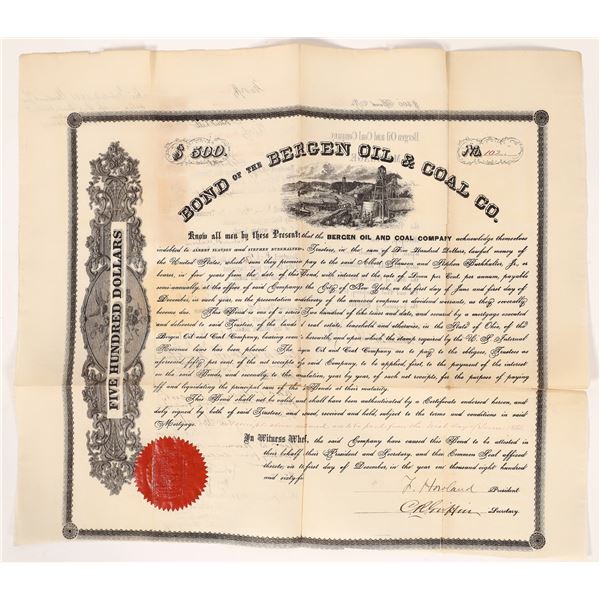 $ 500.
No. 102
BOND OF THE BERGEN OIL & COAL CO.
FIVE HUNDRED DOLLARS
Know all men by these Presents: that the BERGEN OIL AND COAL COMPANY acknowledge themselves
indebted to ALBERT SLAUSON and STEPHEN Trustees, in the sum of Five Hundred Dollars, lawful money of
the United States, which sum they promise pay to the said Albert Slauson and Stephen Jr. or
bearer, in five years from the date of this Bond, with interest at the rate of Seven per Cent. per annum, payable
semi-annually, at the office of said Company the City of New York, on the first day of June and first day of
December, in each year, on the presentation and delivery of the annexed coupons or dividend warrants, as they severally
become due. This Bond is one of a series Two hundred of like tenor and date, and secured by a mortgage executed
and delivered to said Trustees, of the lands real estate, leasehold and otherwise, in the State of Ohio, of the
Bergen Oil and Coal Company, bearing even herewith, and upon which the stamp required by the U. S. Internal
Revenue laws has been placed. The Oil and Coal Company are to pay to the obligees, Trustees as
aforesaid, fifty per cent. of the net receipts by said Company, to be applied, first, to the payment of the interest
on the said Bonds, and secondly, to the year by year, of such net receipts, for the purpose of paying
off and liquidating the principal sum of the Bonds at their maturity.
This Bond shall not be valid until shall have been authenticated by a Certificate endorsed hereon, and
duly signed by both of said Trustees, and issued, received and held, subject to the terms and conditions in said
Mortgage.
In Witness the said Company have caused this Bond to be attested in
their behalf their President and Secretary, and their Common Seal affixed
thereto, first day of December, in the year one thousand eight hundred
and
F. Howland President
C R Griffin Secretary.
Bergen Oil and Coal Company